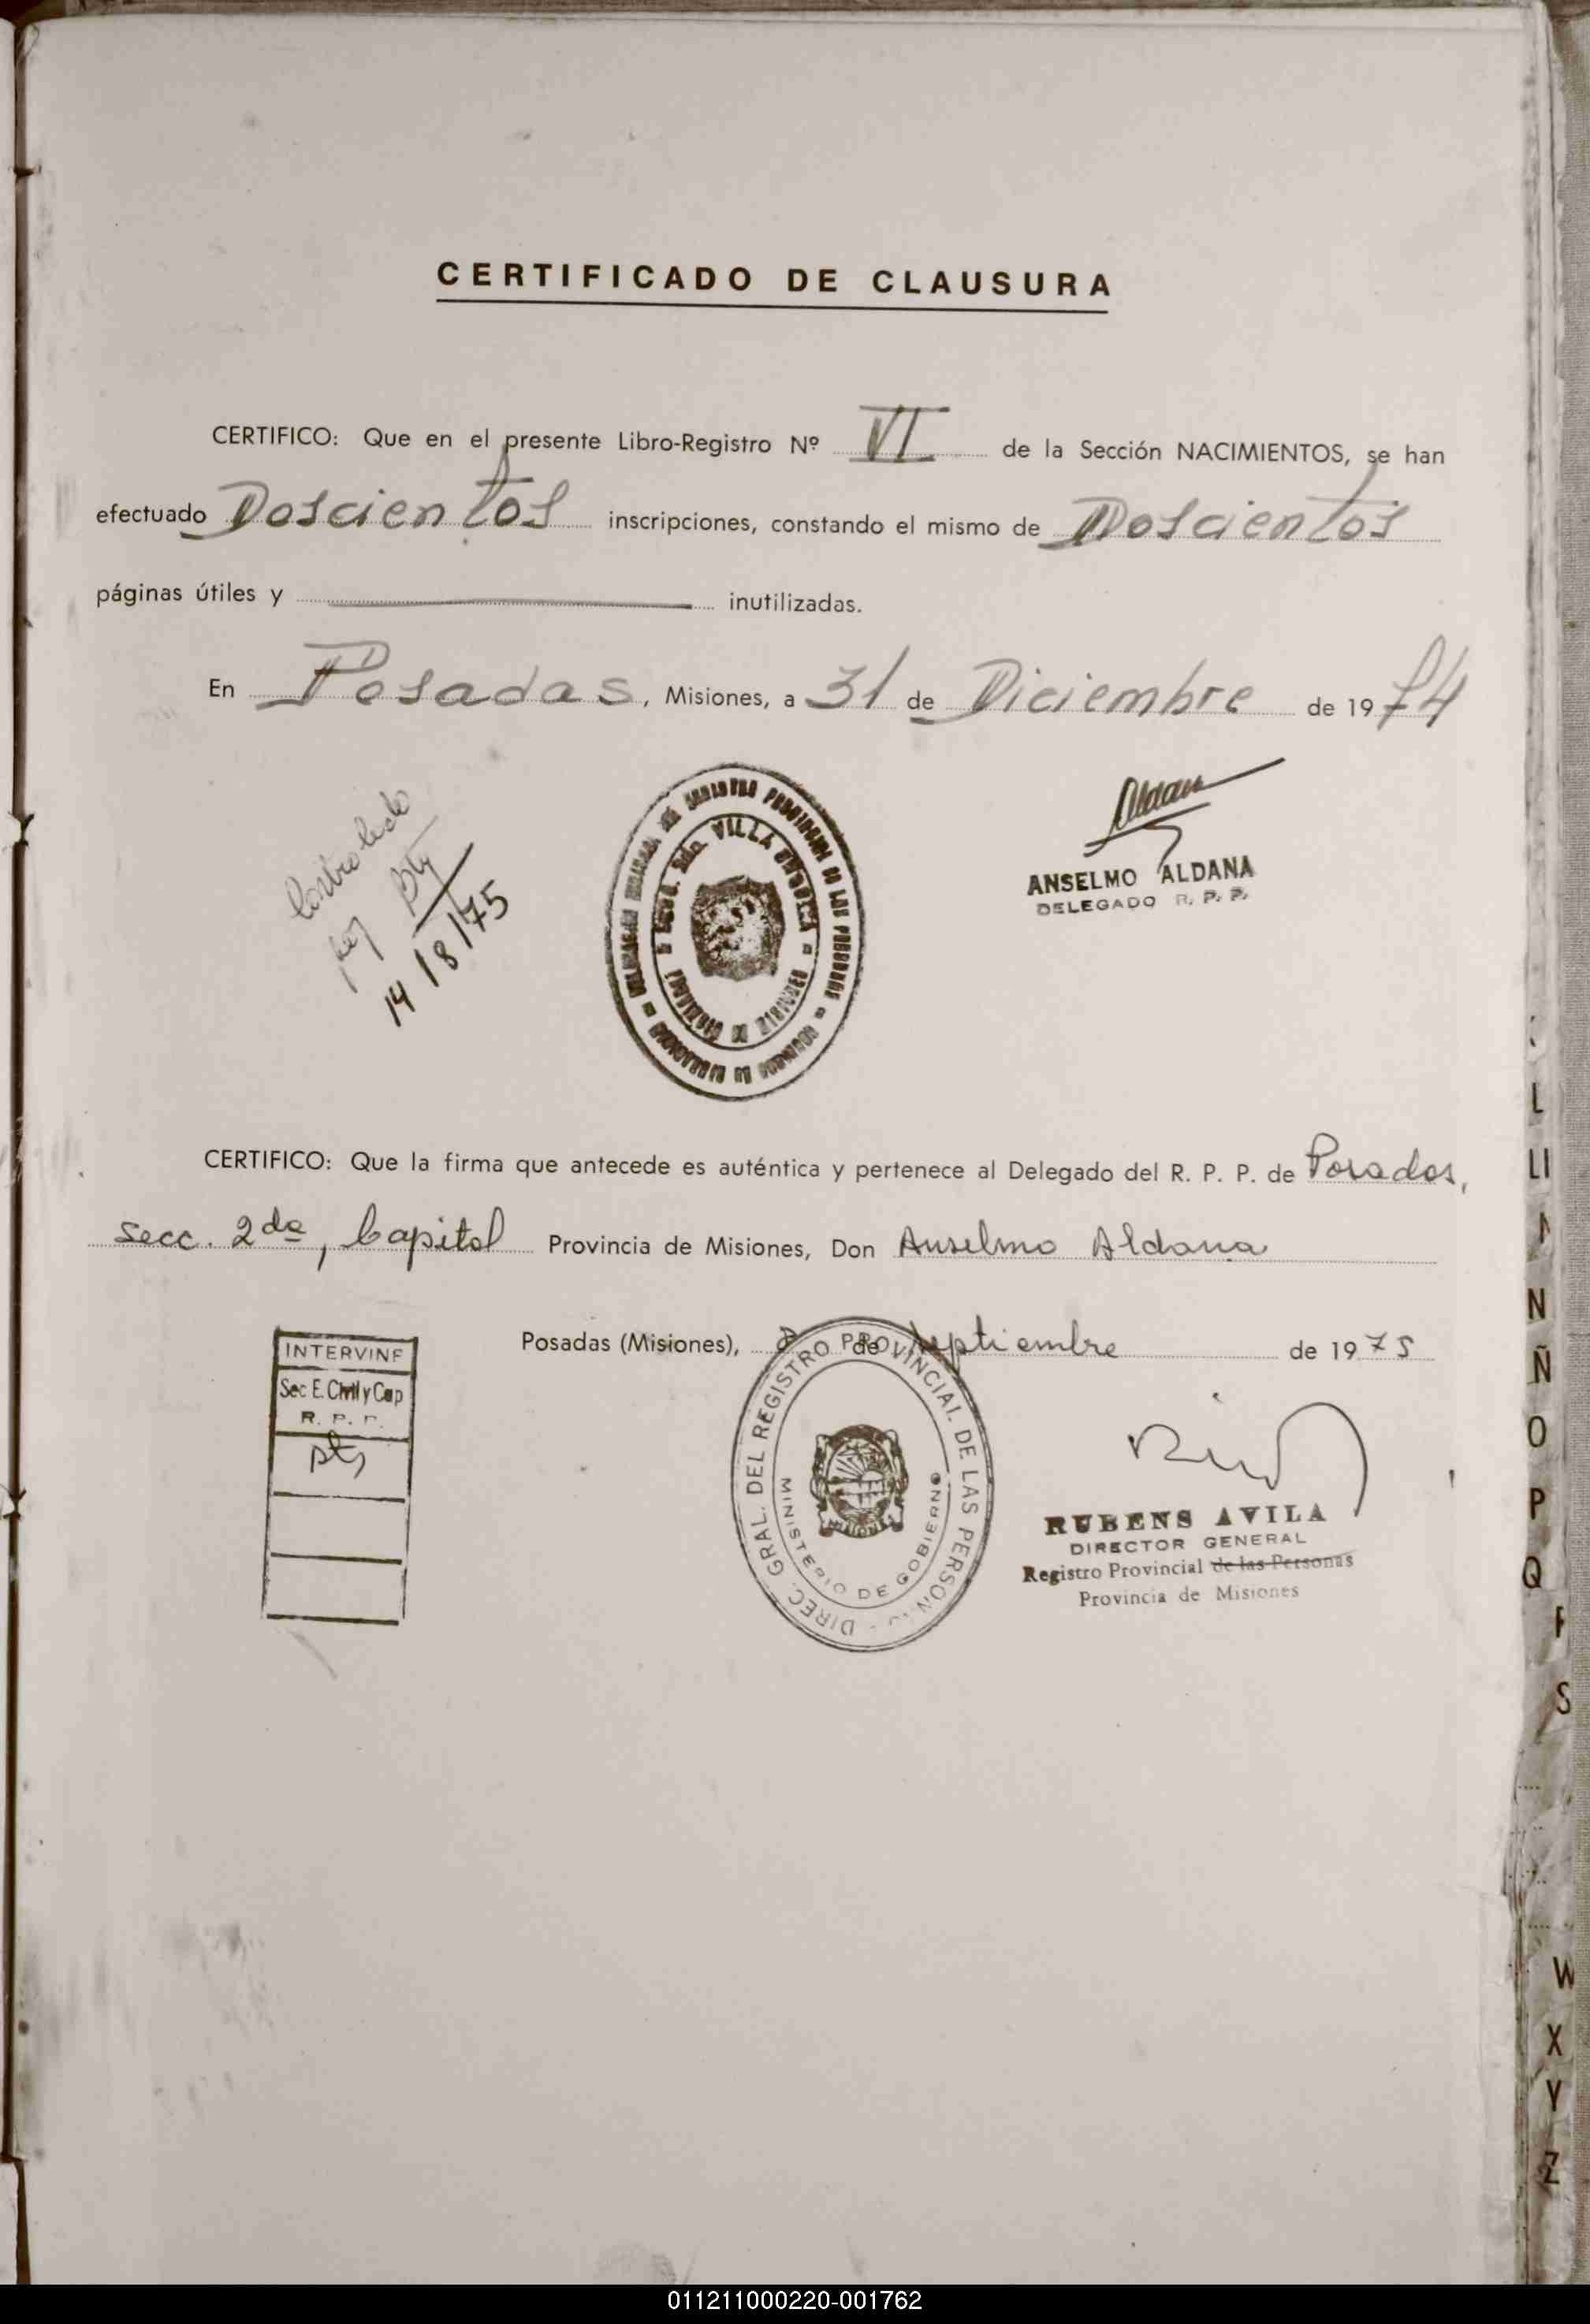 CERTIFICADO DE CLAUSURA
CERTIFICO: Que en el presente Libro-Registro Nº VI de la Sección NACIMIENTOS, se han
efectuado Doscientos inscripciones, constando el mismo de Doscientos
páginas útiles y inutilizadas.
En Posadas, Misiones, a 31 de Diciembre de 1974
Controlado
por
14/8/75
VILLA
Aldana
ANSELMO ALDANA
DELEGADO R. P. P.
CERTIFICO: Que la firma que antecede es auténtica y pertenece al Delegado del R. P. P. de Posadas,
secc. 2da, Capital Provincia de Misiones, Don Anselmo Aldana
Posadas (Misiones), 8 de Septiembre de 1975
INTERVINE
Sec E. Civil y Cap
R. P. P.
DIREC. GRAL. DEL REGISTRO PROVINCIAL DE LAS PERSONAS
MINISTERIO DE GOBIERNO
MISIONES
RUBENS AVILA
DIRECTOR GENERAL
Registro Provincial de las Personas
Provincia de Misiones
L
LI
N
Ñ
O
P
Q
S
W
X
Y
Z
011211000220-001762